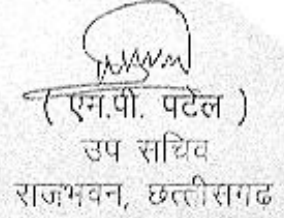 ( एन.पी. पटेल )
उप सचिव
राजभवन, छत्तीसगढ